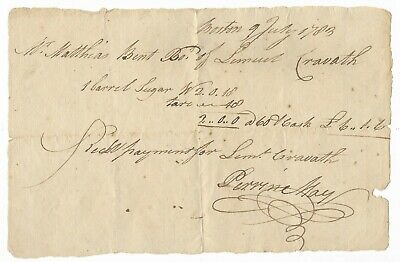 Boston 9 July 1783
Mr. Matthias Bent Bo. of Lemuel Cravath
1 barrel Sugar W 2.0.18
tare 18
2..0..0 a 60/ Cash £ 6..
Recd payment for Leml Cravath
May